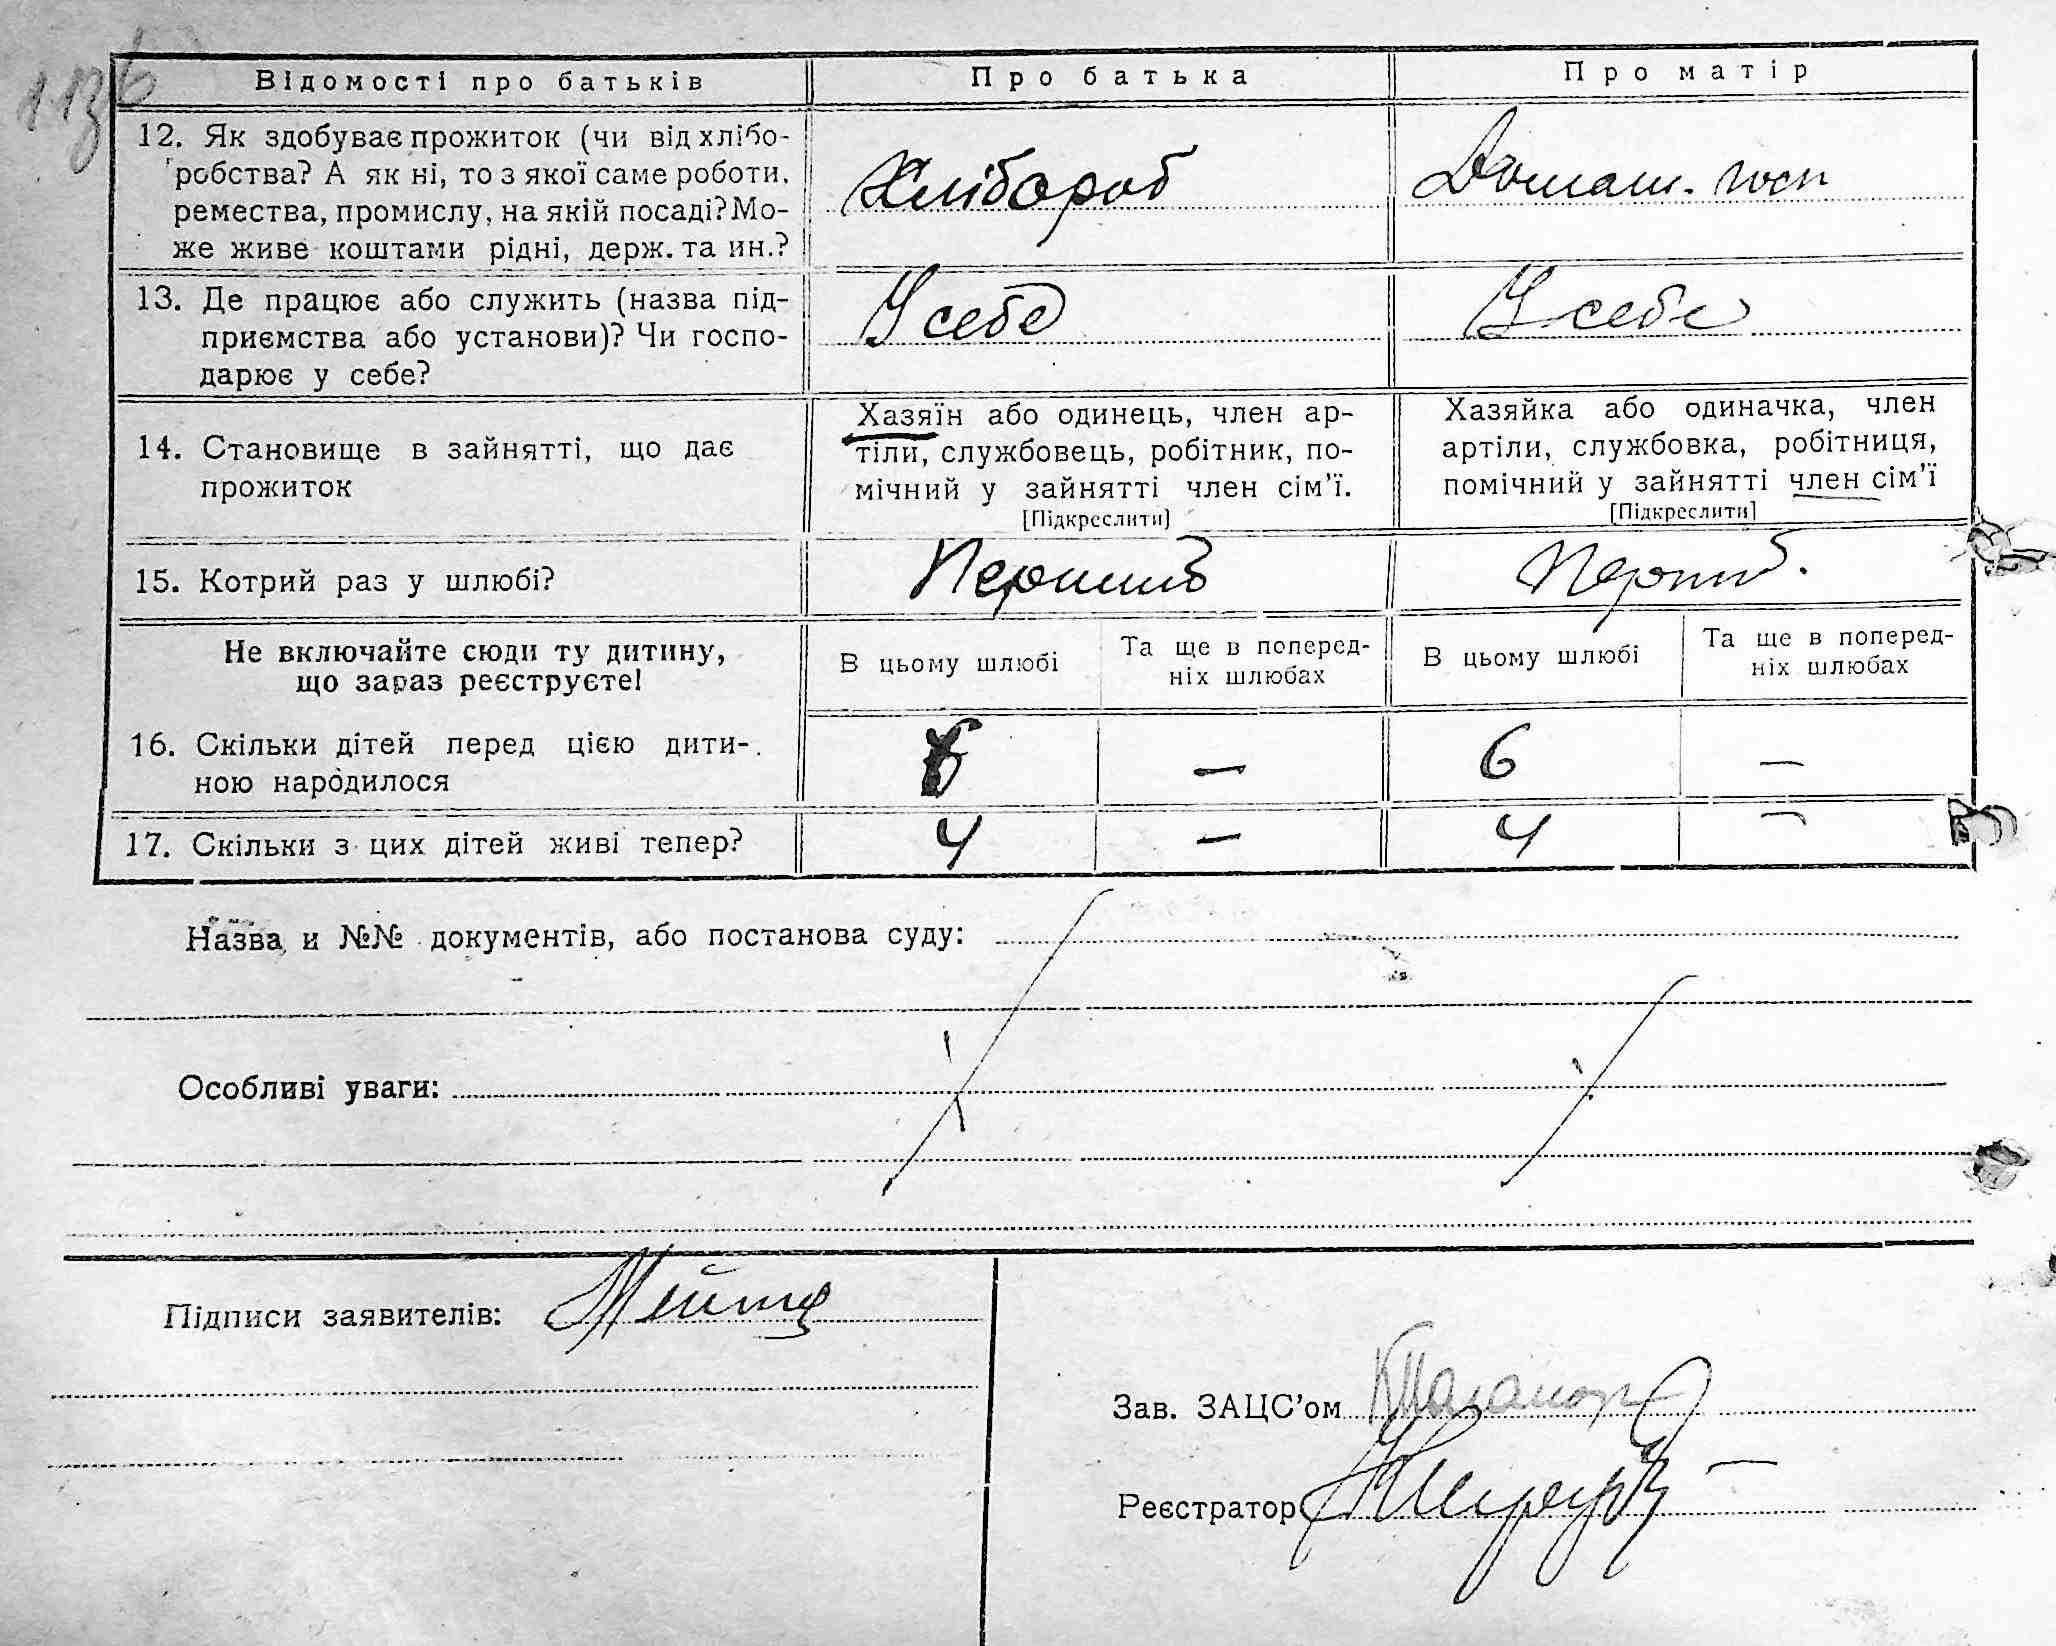 Відомості про батьків Про батька Про матір
12. Як здобуває прожиток (чи від хлібо-
робства? А як ні, то з якої саме роботи,
ремества, промислу, на якій посаді? Мо-
же живе коштами рідні, держ. та ин.?
Хлібороб
Домаш. госп
13. Де працює або служить (назва під-
приємства або установи)? Чи госпо-
дарює у себе?
У себе
У себе
14. Становище в зайнятті, що дає
прожиток
Хазяїн або одинець, член ар-
тіли, службовець, робітник, по-
мічний у зайнятті член сім'ї.
[Підкреслити]
Хазяйка або одиначка, член
артіли, службовка, робітниця,
помічний у зайнятті член сім'ї
[Підкреслити]
15. Котрий раз у шлюбі?
Не включайте сюди ту дитину,
що зараз реєструєте!
В цьому шлюбі
Та ще в поперед-
ніх шлюбах
В цьому шлюбі
Та ще в поперед-
ніх шлюбах
16. Скільки дітей перед цією дити-
ною народилося
6 — 6 —
17. Скільки з цих дітей живі тепер?
4 — 4 —
Назва и №№ документів, або постанова суду:
Особливі уваги:
Підписи заявителів:
Зав. ЗАЦС'ом
Реєстратор